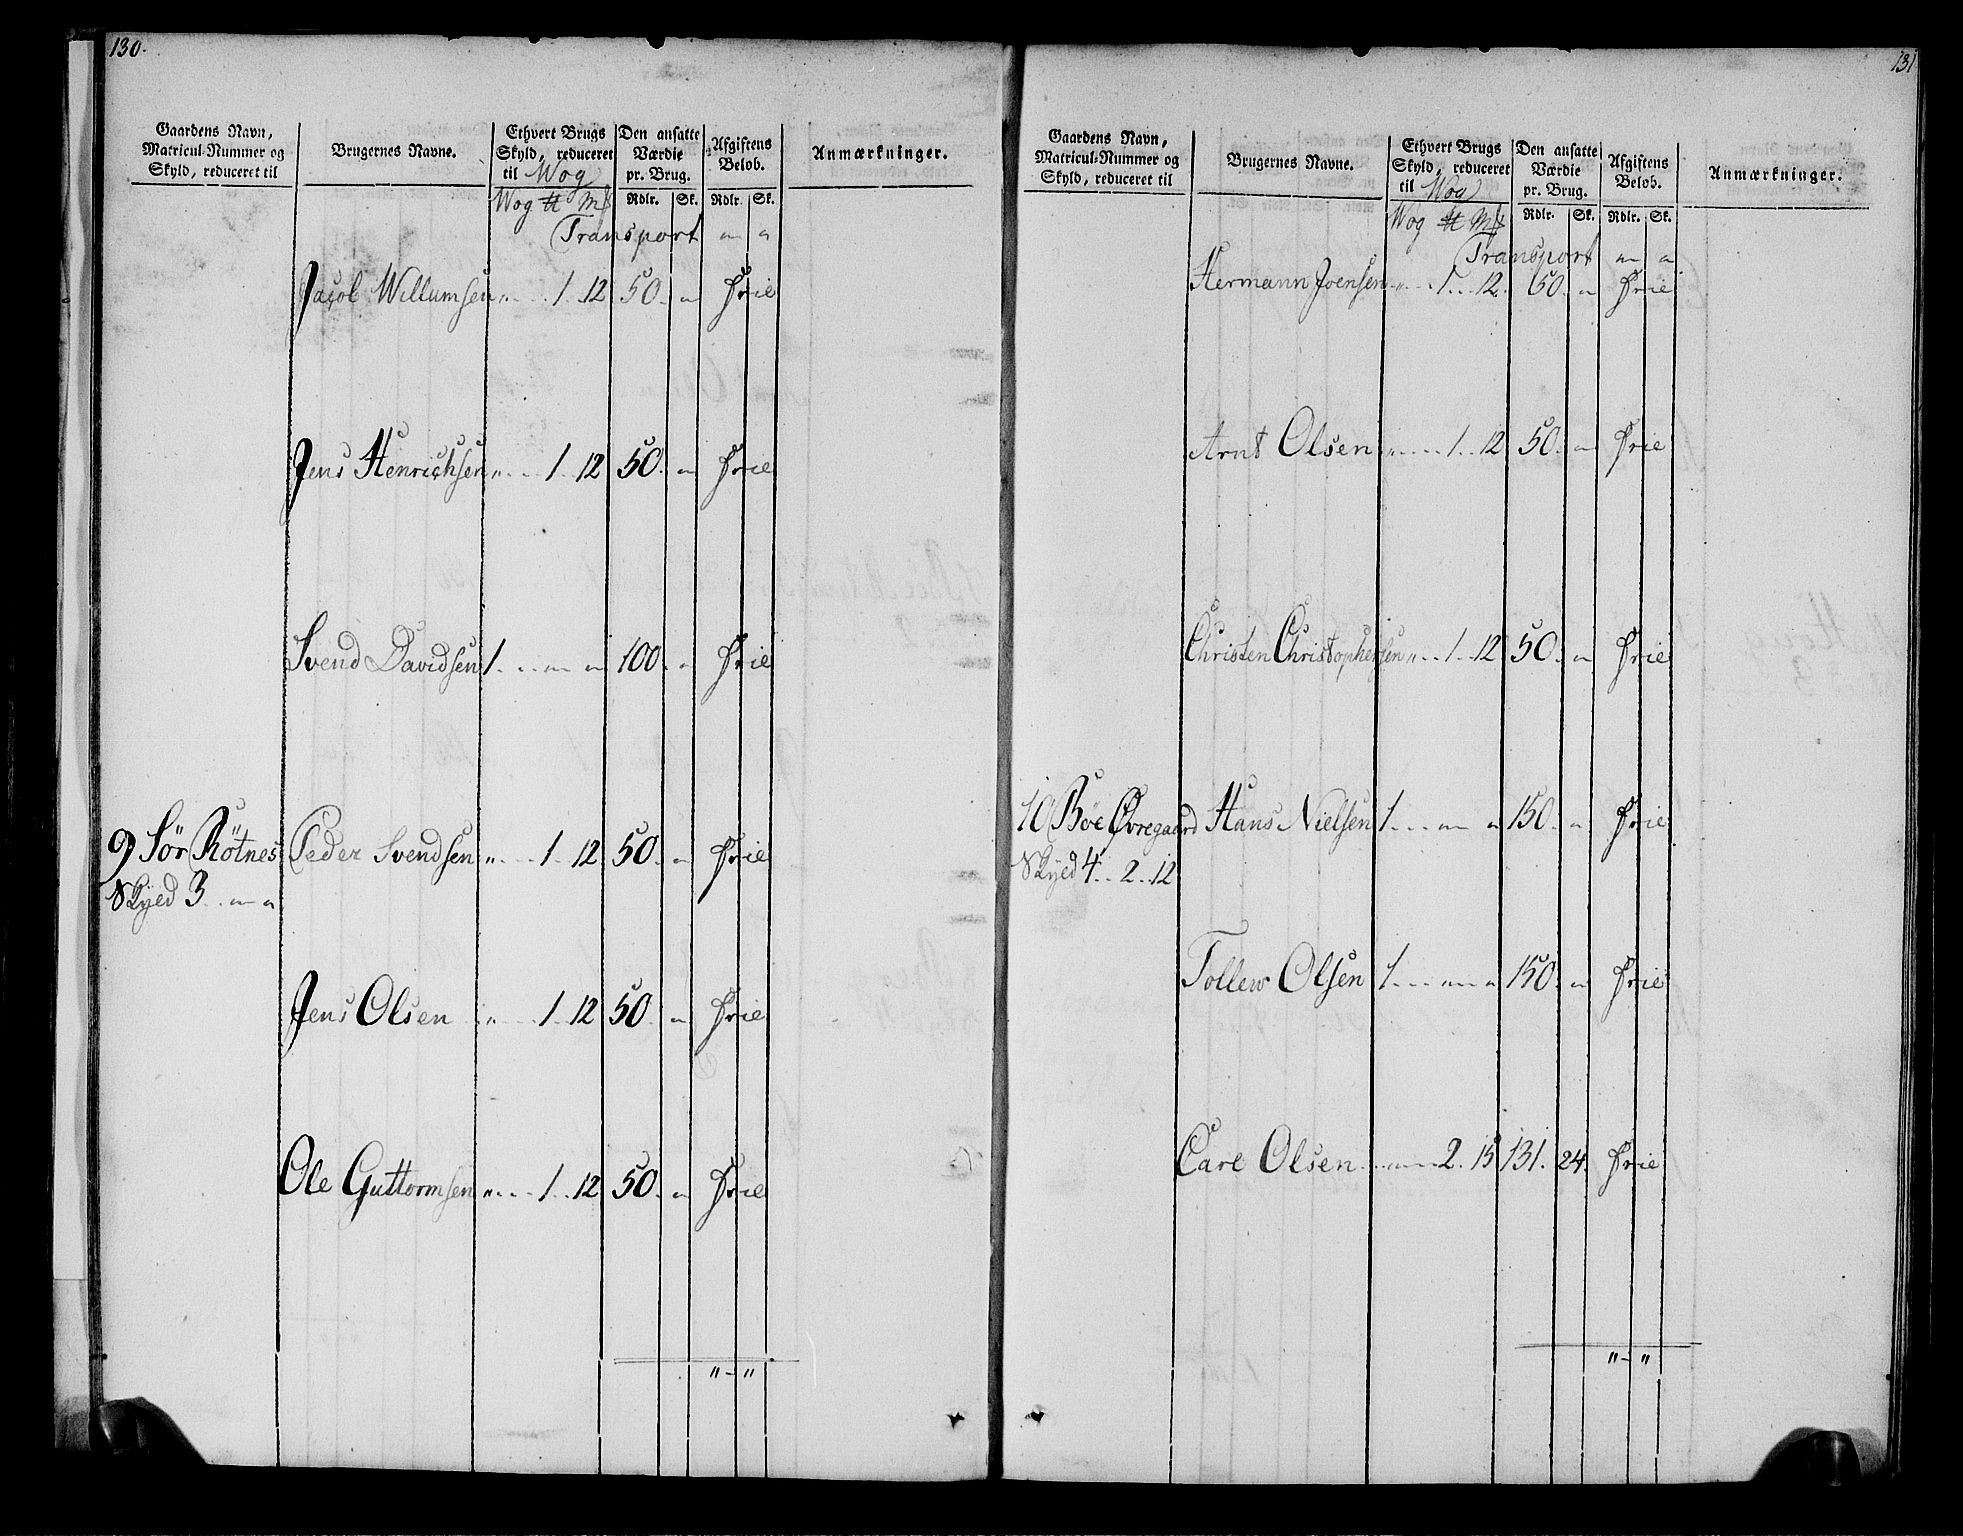 130.
Gaardens Navn, Matricul-Nummer og Skyld, reduceret til | Brugernes Navne. | Ethvert Brugs Skyld, reduceret til Wog | Den ansatte Værdie pr. Brug. | Afgiftens Beløb. | Anmærkninger.
Wog ℔ Mk | Rdlr. | Sk. | Rdlr. | Sk.
Transport " "
Jacob Willumsen " 1 12 50. " Frie
Jens Henrichsen " 1 12 50. " Frie
Svend Davidsen 1 " " 100. " Frie
9 Sør Røtnes Peder Svendsen " 1 12 50. " Frie
Skyld 3 " "
Jens Olsen " 1 12 50 " Frie
Ole Guttormsen " 1 12 50. " Frie
" - "
131
Gaardens Navn, Matricul-Nummer og Skyld, reduceret til | Brugernes Navne. | Ethvert Brugs Skyld, reduceret til Wog | Den ansatte Værdie pr. Brug. | Afgiftens Beløb. | Anmærkninger.
Wog ℔ Mk | Rdlr. | Sk. | Rdlr. | Sk.
Transport " "
Hermann Joensen " 1 12. 50. " Frie
Arnt Olsen " 1 12 50. " Frie
Christen Christophersen " 1 12 50. " Frie
10 Böe Øvregaard Hans Nielsen 1 " " 150. " Frie
Skyld 4 2 12
Tollew Olsen 1 " " 150. " Frie
Carl Olsen " 2. 15 131. 24. Frie
" - "